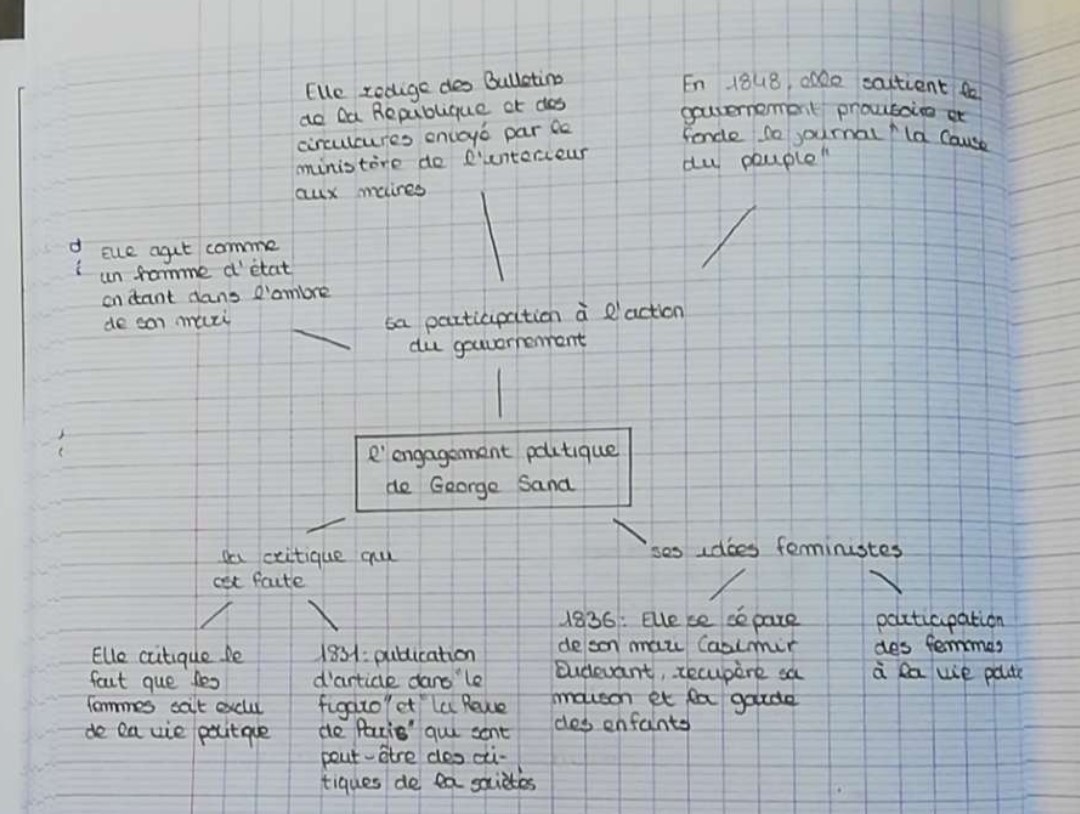 Elle rédige des Bulletins
de la République et des
circulaires envoyé par le
ministère de l'interieur
aux maires
En 1848, elle soutient le
gouvernement provisoire et
fonde le journal "la Cause
du peuple"
d
i
Elle agit comme
un homme d'état
en étant dans l'ombre
de son mari
sa participation à l'action
du gouvernement
l'engagement politique
de George Sand
la critique qui
est faite
ses idées feministes
Elle critique le
fait que les
femmes soit exclu
de la vie politque
1831: publication
d'article dans "le
figaro" et "la Revue
de Paris" qui sont
peut-être des cri-
tiques de la sociétés
1836: Elle se sépare
de son mari Casimir
Dudevant, recupère sa
maison et la garde
des enfants
participation
des femmes
à la vie